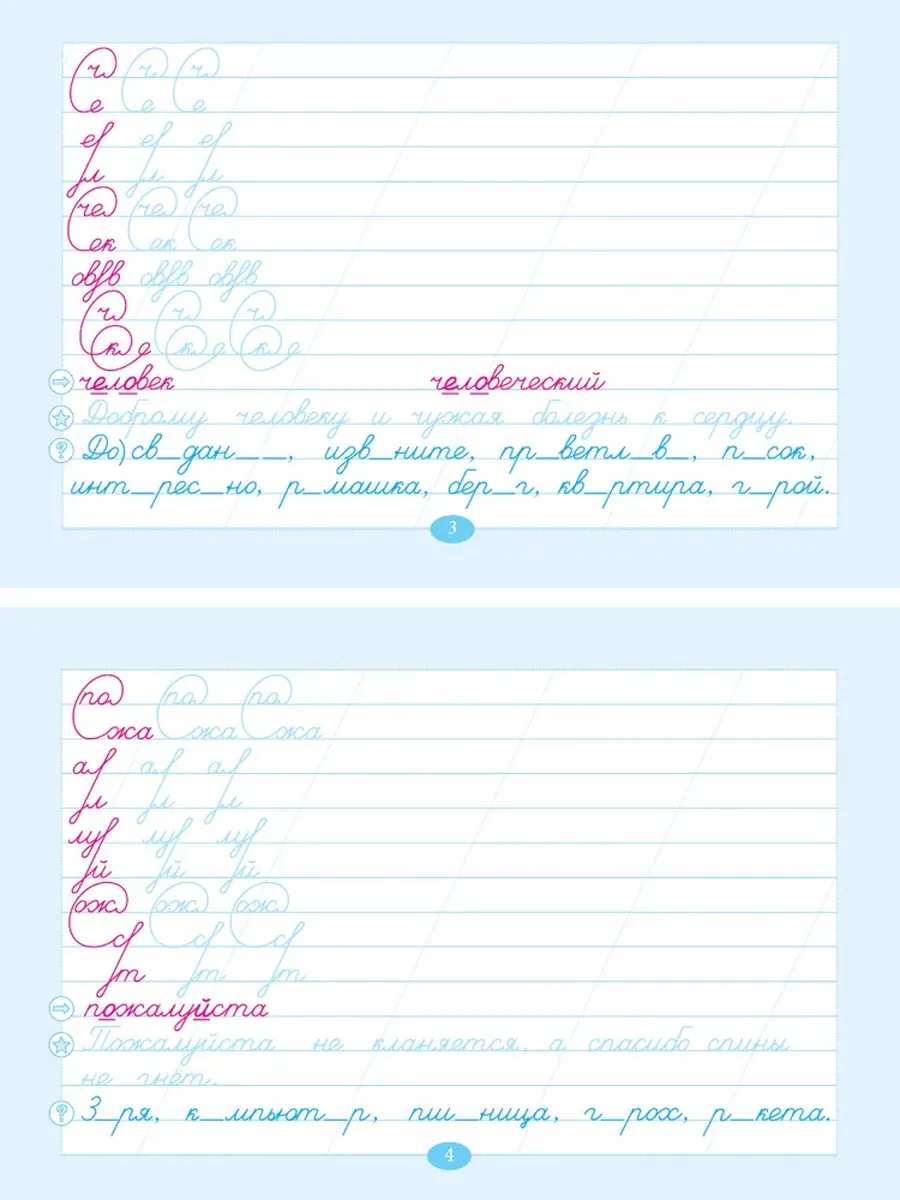 ч ч ч
е е е
еf еf еf
л л л
че че че
ек ек ек
овfв овfв овfв
ч ч ч
к е к е к е
человек человеческий
Доброму человеку и чужая болезнь к сердцу.
До)св_дан_ _, изв_ните, пр_ветл_в_, п_сок,
инт_рес_но, р_машка, бер_г, кв_ртира, г_рой.
3
по по по
жа жа жа
аf аf аf
л л л
луf луf луf
й й й
ож ож ож
сf сf сf
т т т
пожалуйста
Пожалуйста не кланяется, а спасибо спины
не гнёт.
З_ря, к_мпьют_р, пш_ница, г_рох, р_кета.
4